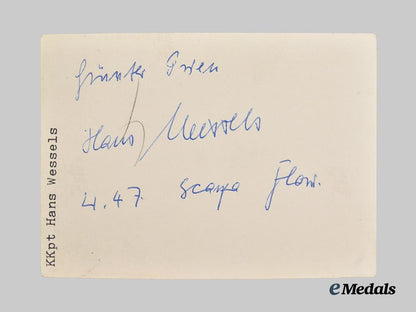 Günter Prien
Hans Wessels
U. 47. Scapa Flow.
KKpt Hans Wessels
eMedals